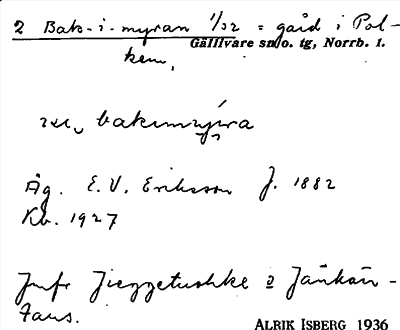 2 Bak-i-myran 1/32 = gård i Pol-
Gällivare sn o. tg, Norrb. l.
kem,
bakimyıra
Äg. E. V. Eriksson f. 1882
Kb. 1927
Jmfr Jieggetushke 2 Jänkän-
taus.
ALRIK ISBERG 1936